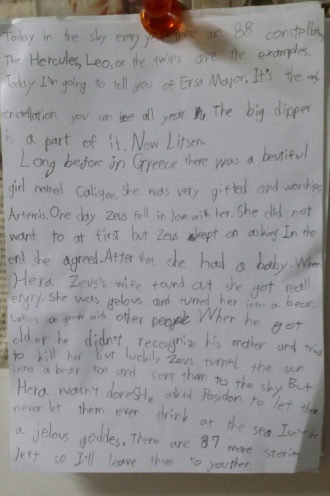 Today in the sky every year there are 88 constellation
The Hercules, Leo, or the twins are the examples.
Today I'm going to tell you of Ersa Mayor. It's the
constellation you can see all year. The big dipper
is a part of it. Now Litsen.
Long before in Greece there was a beutiful
girl named Calistao. She was very gifted and worshiped
Artemis. One day Zeus fell in love with her. She did not
want to at first but Zeus kept on asking. In the
end she agreed. After that she had a baby. When
Hera Zeus's wife found out she got reall
engry. She was gelous and turned her into a bear.
with other people When he got
older he didn't recognize his mother and tried
to kill her but luckily Zeus turned the son
into a bear too and sent them to the sky. But
Hera wasn't done. She asked Posidon to let them
never let them even drink at the sea. Isn't she
a jelous goddes. There are 87 more stories
left so I'll leave them to you